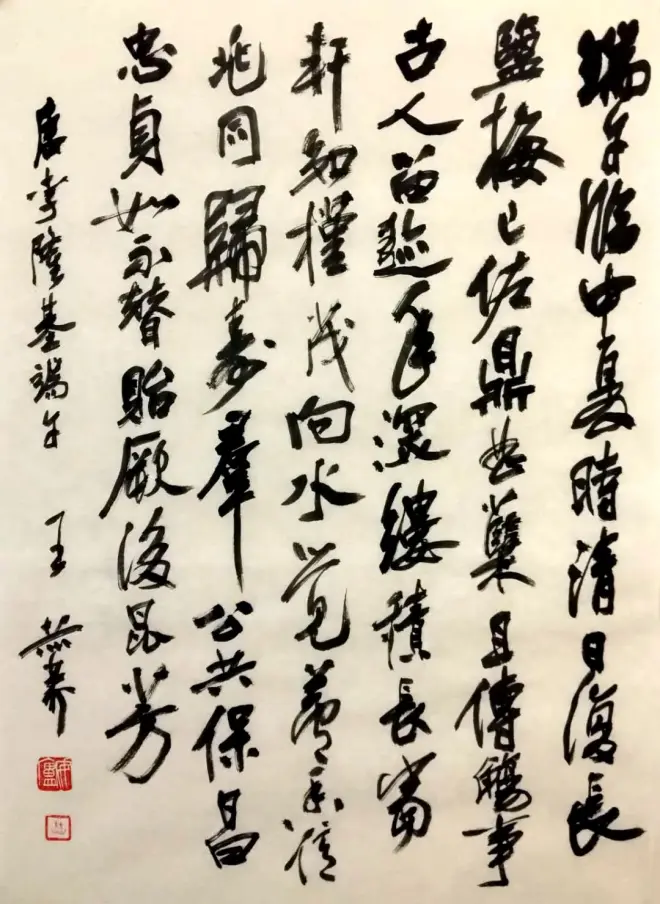 端午臨中夏時清日復長
鹽梅已佐鼎曲糵且傳觴事
古人留迹年深縷積長當
軒知槿茂向水覺蘆香億
兆同歸壽羣公共保昌
忠貞如不替貽厥後昆芳
唐李隆基端午 王